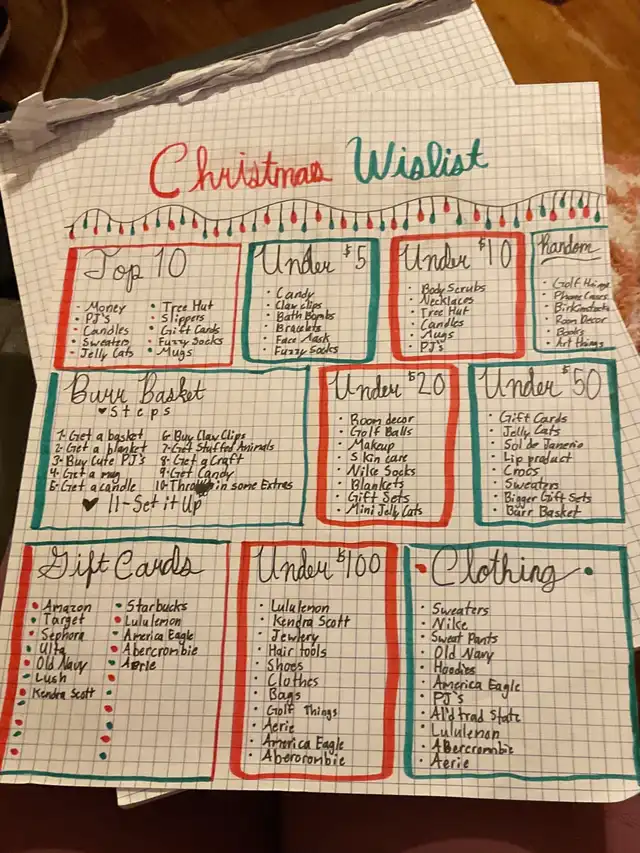 Christmas Wislist
Top 10
Money
PJ's
Candles
Sweaters
Jelly Cats
Tree Hut
Slippers
Gift Cards
Fuzzy Socks
Mugs
Under $5
Candy
Claw clips
Bath Bombs
Bracelets
Face Mask
Fuzzy Socks
Under $10
Body Scrubs
Necklaces
Tree Hut
Candles
Mugs
PJ's
Random
Golf things
Phone Cases
Birkinstocks
Room Decor
Books
Art things
Burr Basket
♥ Steps
1- Get a basket
2- Get a blanket
3- Buy Cute PJ's
4- Get a mug
5- Get a candle
6- Buy Claw Clips
7- Get Stuffed Animals
8- Get a Craft
9- Get Candy
10- Throw in some Extras
♥ 11- Set it Up
Under $20
Room decor
Golf Balls
Makeup
Skin care
Nike Socks
Blankets
Gift Sets
Mini Jelly Cats
Under $50
Gift Cards
Jelly Cats
Sol de Janerio
Lip product
Crocs
Sweaters
Bigger Gift Sets
Burr Basket
Gift Cards
Amazon
Target
Sephora
Ulta
Old Navy
Lush
Kendra Scott
Starbucks
Lululemon
America Eagle
Abercrombie
Aerie
Under $100
Lululemon
Kendra Scott
Jewlery
Hair tools
Shoes
Clothes
Bags
Golf Things
Aerie
America Eagle
Abercrombie
Clothing
Sweaters
Nike
Sweat Pants
Old Navy
Hoodies
America Eagle
PJ's
Al'd trad State
Lululemon
Abercrombie
Aerie